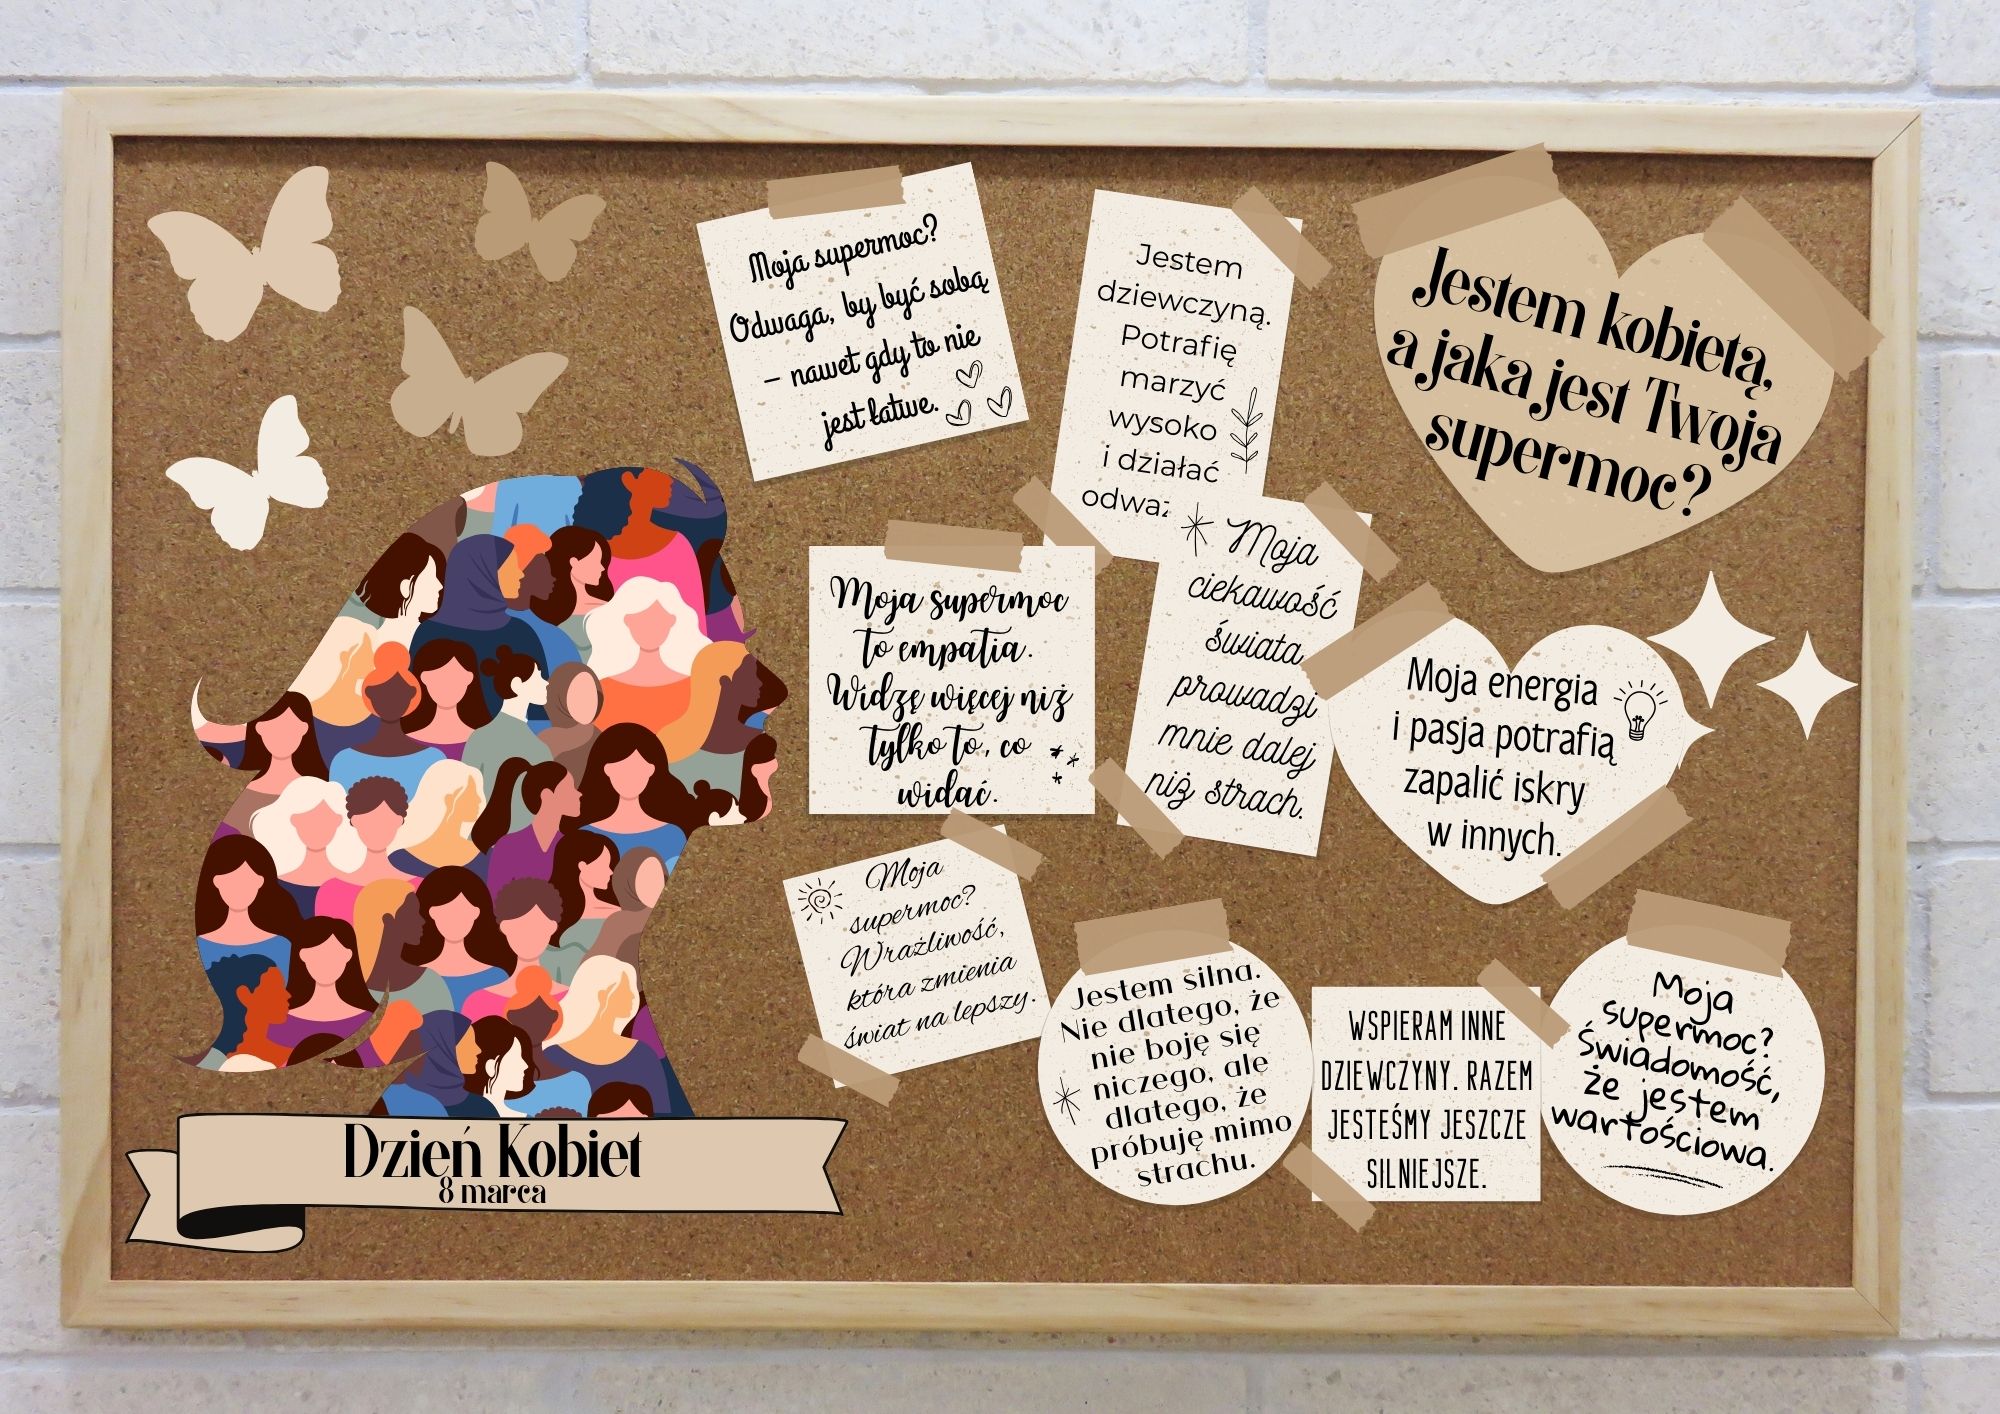 Moja supermoc?
Odwaga, by być sobą
– nawet gdy to nie
jest łatwe.
Jestem
dziewczyną.
Potrafię
marzyć
wysoko
i działać
Jestem kobietą,
a jaka jest Twoja
supermoc?
Moja supermoc
to empatia.
Widzę więcej niż
tylko to, co
widać.
Moja
ciekawość
świata
prowadzi
mnie dalej
niż strach.
Moja energia
i pasja potrafią
zapalić iskry
w innych.
Moja
supermoc?
Wrażliwość,
która zmienia
świat na lepszy.
Jestem silna.
Nie dlatego, że
nie boję się
niczego, ale
dlatego, że
próbuję mimo
strachu.
WSPIERAM INNE
DZIEWCZYNY. RAZEM
JESTEŚMY JESZCZE
SILNIEJSZE.
Moja
supermoc?
Świadomość,
że jestem
wartościowa.
Dzień Kobiet
8 marca